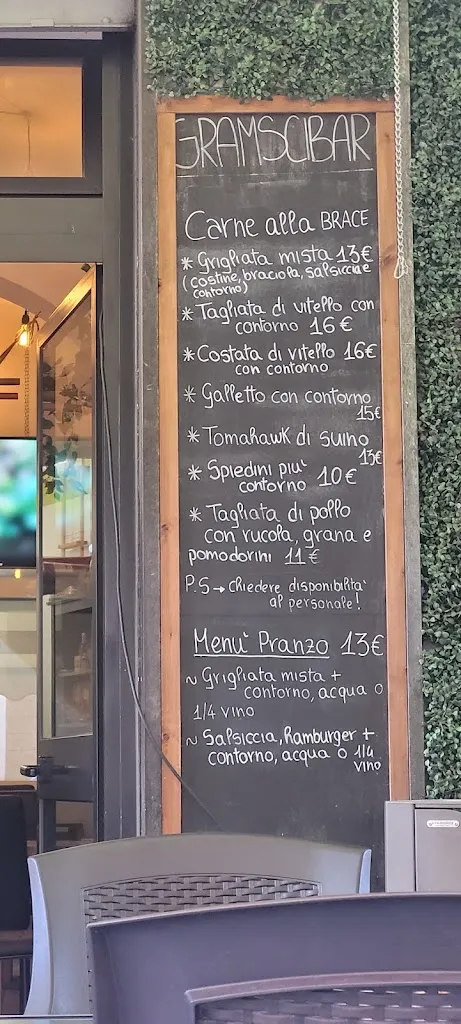 GRAMSCIBAR
Carne alla BRACE
* Grigliata mista 13€
(costine, braciola, salsiccia e
contorno)
* Tagliata di vitello con
contorno 16€
* Costata di vitello 16€
con contorno
* Galletto con contorno
15€
* Tomahawk di suino
13€
* Spiedini più
contorno 10€
* Tagliata di pollo
con rucola, grana e
pomodorini 11€
P.S → chiedere disponibilità
al personale!
Menù Pranzo 13€
~ Grigliata mista +
contorno, acqua o
1/4 vino
~ Salsiccia, hamburger +
contorno, acqua o 1/4
vino